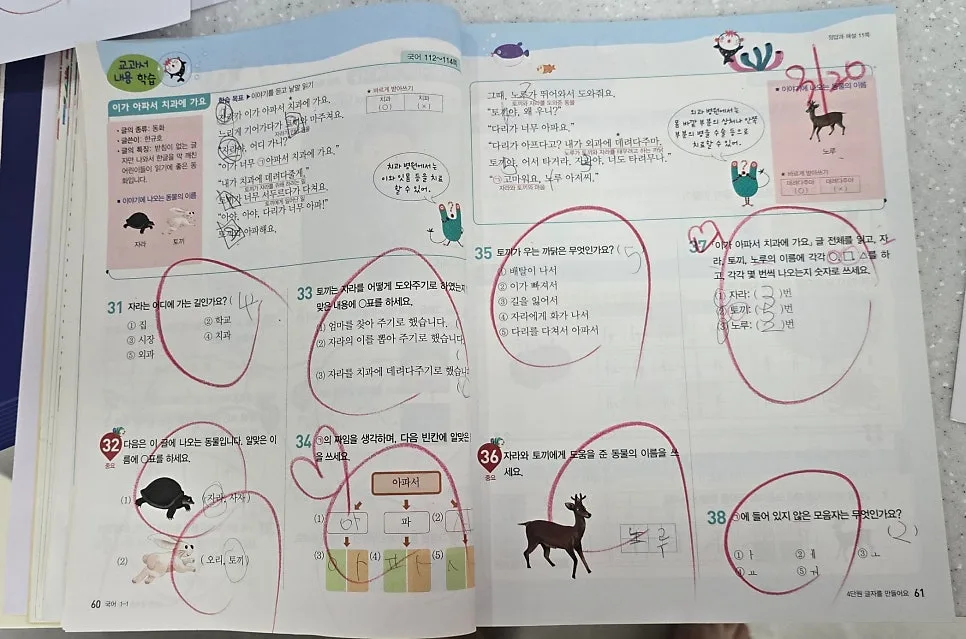 교과서
내용 학습
국어 112~114쪽
이가 아파서 치과에 가요
• 글의 종류: 동화
• 글쓴이: 한규호
• 글의 특징: 받침이 없는 글
자만 나와서 한글을 막 깨친
어린이들이 읽기에 좋은 동
화입니다.
★ 이야기에 나오는 동물의 이름
자라
토끼
학습 목표 ▶ 이야기를 듣고 낱말 읽기
자라가 이가 아파서 치과에 가요.
느리게 기어가다가 토끼와 마주쳐요.
"자라야, 어디 가니?"
"이가 너무 ㉠아파서 치과에 가요."
"내가 치과에 데려다줄게."
토끼가 너무 서두르다가 다쳐요.
"아야, 아야, 다리가 너무 아파!"
토끼가 아파해요.
★ 바르게 받아쓰기
치과
(○)
치꽈
(×)
치과 병원에서는
이와 잇몸 등을 치료
할 수 있어.
31 자라는 어디에 가는 길인가요? ( 4
① 집
② 학교
③ 시장
④ 치과
⑤ 외과
32 다음은 이 글에 나오는 동물입니다. 알맞은 이
중요
름에 ○표를 하세요.
(1)
(자라, 사자)
(2)
(오리, 토끼)
33 토끼는 자라를 어떻게 도와주기로 하였는지
맞은 내용에 ○표를 하세요.
(1) 엄마를 찾아 주기로 했습니다. (
(2) 자라의 이를 뽑아 주기로 했습니다
(3) 자라를 치과에 데려다주기로 했습니
34 ㉠의 짜임을 생각하며, 다음 빈칸에 알맞은
을 쓰세요.
아파서
(1) 아
파
(2)
(3)
(4)
(5)
60 국어 1-1
정답과 해설 11쪽
9/20
그때, 노루가 뛰어와서 도와줘요.
토끼와 자라를 도와준 동물
"토끼야, 왜 우니?"
"다리가 너무 아파요."
"다리가 아프다고? 내가 외과에 데려다주마.
토끼야, 어서 타거라. 자라야, 너도 타려무나."
"㉡고마워요, 노루 아저씨."
자라와 토끼의 마음
외과 병원에서는
몸 바깥 부분의 상처나 안쪽
부분의 병을 수술 등으로
치료할 수 있어.
★ 이야기에 나오는 동물의 이름
노루
★ 바르게 받아쓰기
데려다주마
(○)
(×)
35 토끼가 우는 까닭은 무엇인가요? ( 5
① 배탈이 나서
② 이가 빠져서
③ 길을 잃어서
④ 자라에게 화가 나서
⑤ 다리를 다쳐서 아파서
36 자라와 토끼에게 도움을 준 동물의 이름을 쓰
중요
세요.
노루
37 「이가 아파서 치과에 가요」 글 전체를 읽고, 자
라, 토끼, 노루의 이름에 각각 ○, □, △를 하
고, 각각 몇 번씩 나오는지 숫자로 쓰세요.
(1) 자라: ( 3 )번
(2) 토끼: ( 5 )번
(3) 노루: ( 2 )번
38 ㉡에 들어 있지 않은 모음자는 무엇인가요?
( 2 )
① ㅏ
② ㅔ
③ ㅗ
④ ㅛ
⑤ ㅝ
4단원 글자를 만들어요 61